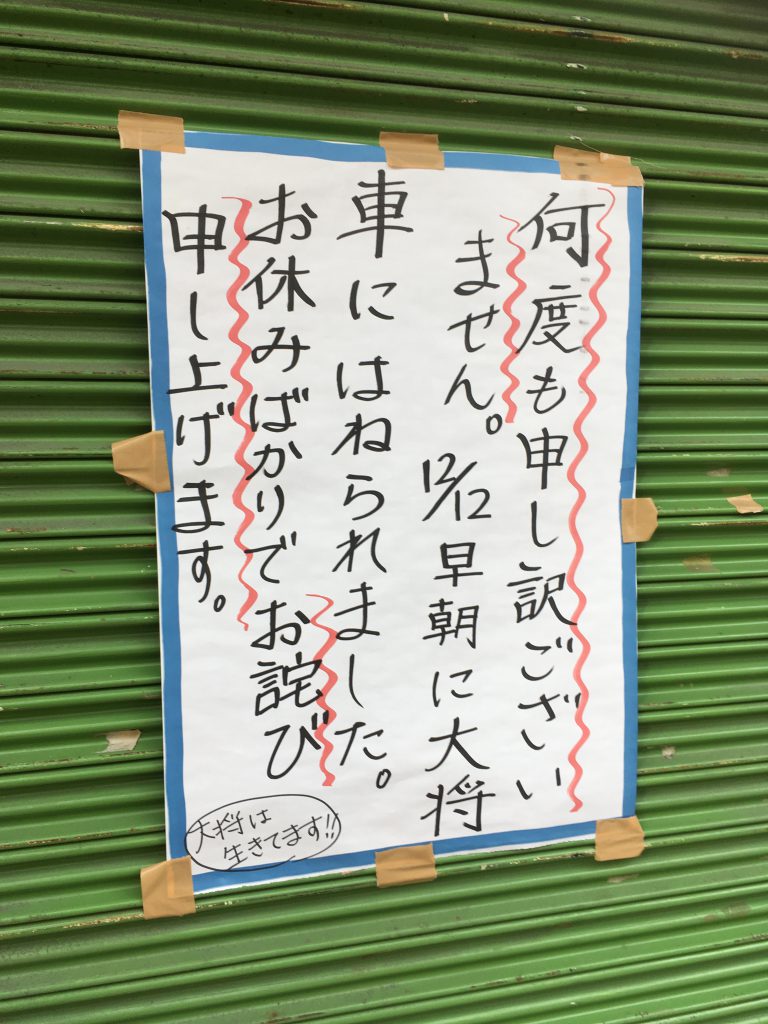 何度も申し訳ござい
ません。12/12早朝に大将
車にはねられました。
お休みばかりでお詫び
申し上げます。
大将は
生きてます!!